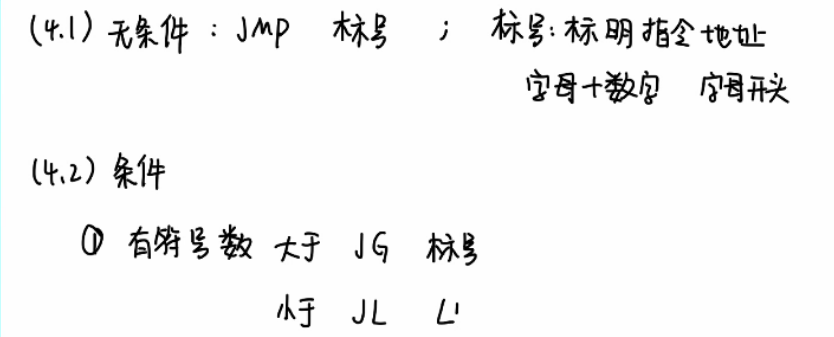 (4.1) 无条件 : JMP 标号 ; 标号: 标明指令地址
字母+数字 字母开头
(4.2) 条件
① 有符号数 大于 JG 标号
小于 JL L1